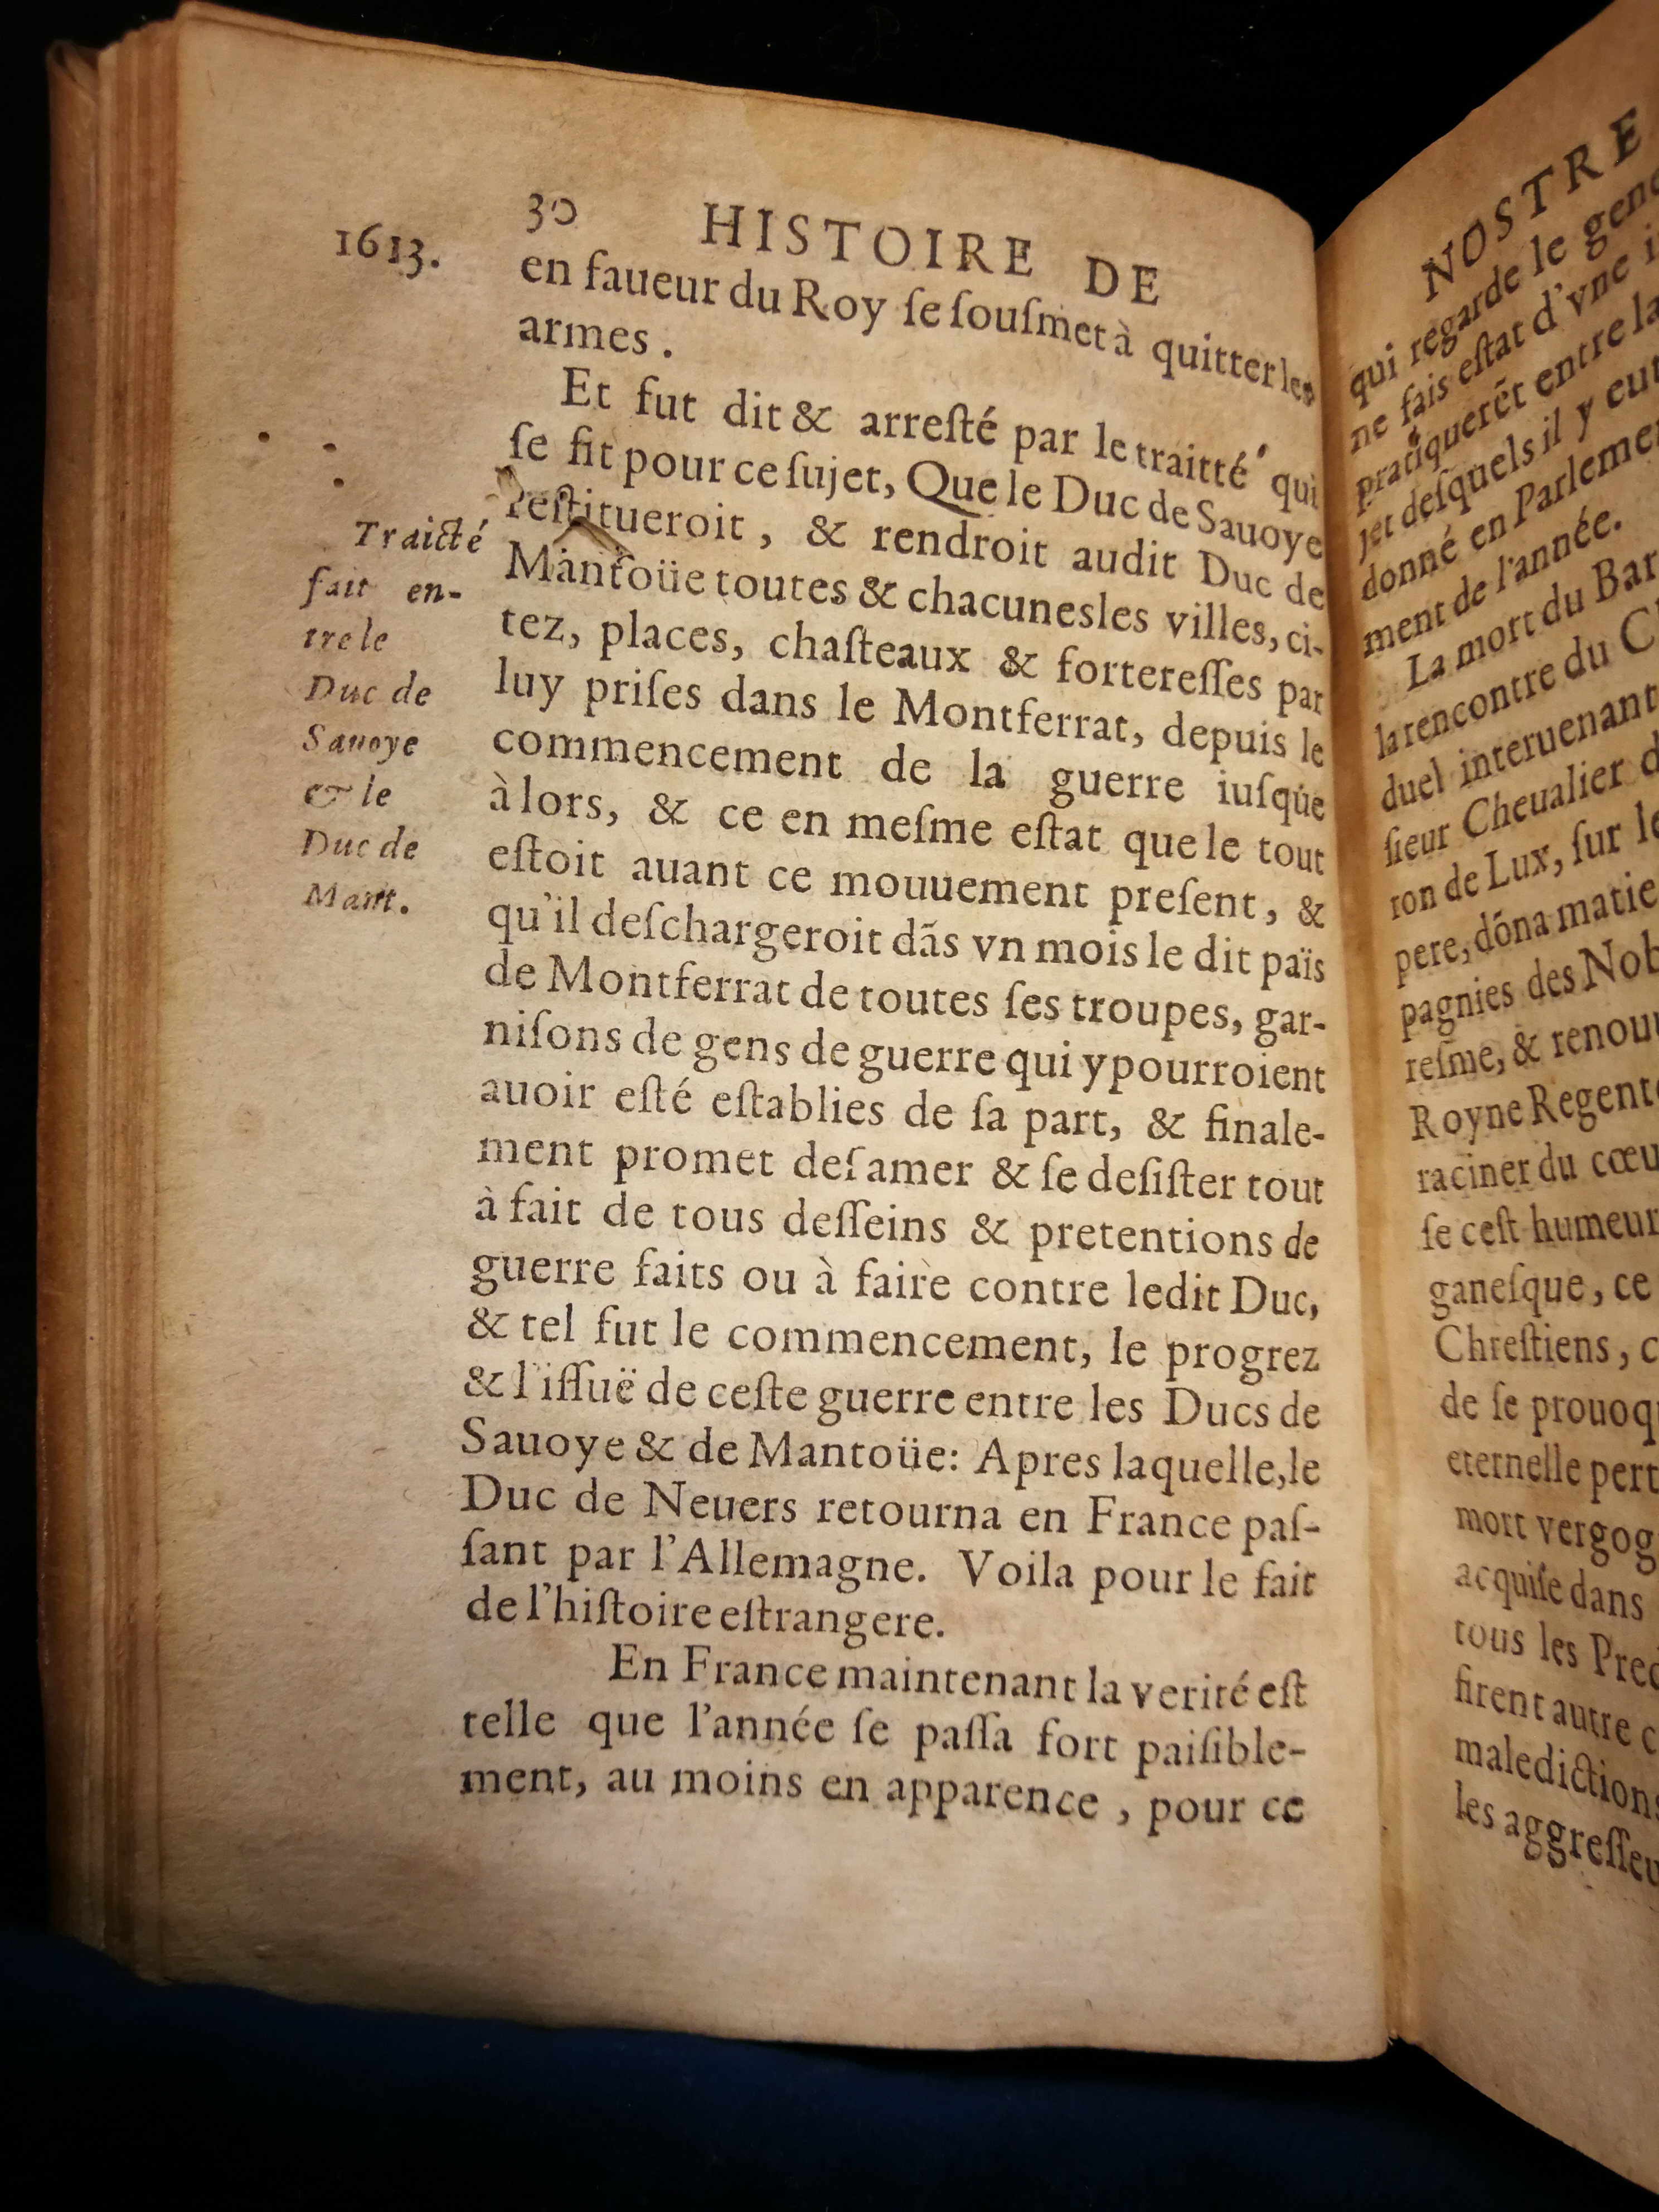 30 HISTOIRE DE
1613.
en faueur du Roy ſe ſouſmet à quitter les
armes.
Et fut dit & arreſté par le traitté qui
ſe fit pour ce ſujet, Que le Duc de Sauoye
reſtitueroit, & rendroit audit Duc de
Mantoüe toutes & chacunes les villes, ci-
tez, places, chaſteaux & fortereſſes par
luy priſes dans le Montferrat, depuis le
commencement de la guerre iuſque
à lors, & ce en meſme eſtat que le tout
eſtoit auant ce mouuement preſent, &
qu'il deſchargeroit dãs vn mois le dit païs
de Montferrat de toutes ſes troupes, gar-
niſons de gens de guerre qui y pourroient
auoir eſté eſtablies de ſa part, & finale-
ment promet deſamer & ſe deſiſter tout
à fait de tous deſſeins & pretentions de
guerre faits ou à faire contre ledit Duc,
& tel fut le commencement, le progrez
& l'iſſuë de ceſte guerre entre les Ducs de
Sauoye & de Mantoüe: Apres laquelle, le
Duc de Neuers retourna en France paſ-
ſant par l'Allemagne. Voila pour le fait
de l'hiſtoire eſtrangere.
En France maintenant la verité eſt
telle que l'année ſe paſſa fort paiſible-
ment, au moins en apparence, pour ce
Traicté
fait en-
tre le
Duc de
Sauoye
& le
Duc de
Mant.
NOSTRE
qui regarde le
ne fais eſtat d'vne
pratiquerẽt entre la
jet deſquels il y eut
donné en
ment de l'année.
La mort du
la rencontre du
duel interuenant
ſieur Cheualier
ron de Lux, ſur
pere, dõna
pagnies des
reſme, &
Royne
raciner du
ſe ceſt humeur
ganeſque, ce
Chreſtiens,
de ſe
eternelle
mort
acquiſe dans
tous les
firent autre
les